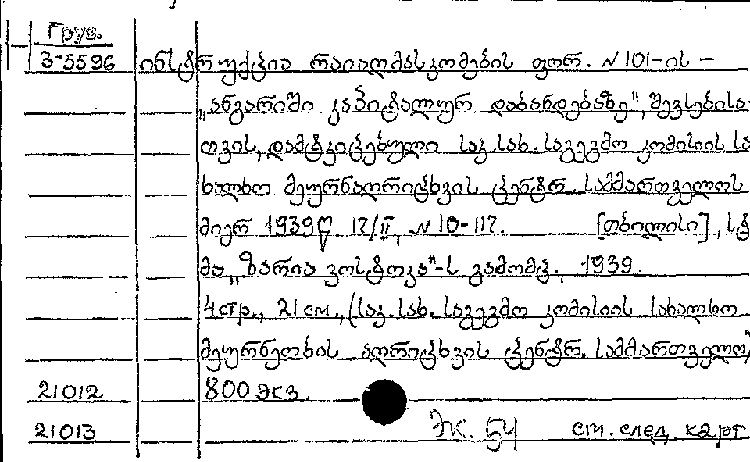 Груз.
3-5596 ინსტრუქცია რაიაღმასკომების ფორ. №101-ის –
„ანგარიში კაპიტალურ დაბანდებაზე“, შევსებისა
თვის, დამტკიცებული საკ. სახ. საგეგმო კომისიის სა
ხალხო მეურნ აღრიცხვის ცენტრ. სამმართველოს
მიერ 1939წ. 17/II, №10-117. [თბილისი], სტ
მა „ზარია ვოსტოკა“-ს გამომც. 1939.
4 стр., 21 см., (საკ. სახ. საგეგმო კომისიის სახალხო
მეურნეობის აღრიცხვის ცენტრ. სამმართველო,
21012 800 экз.
21013 Эк. 54 см. след. карт